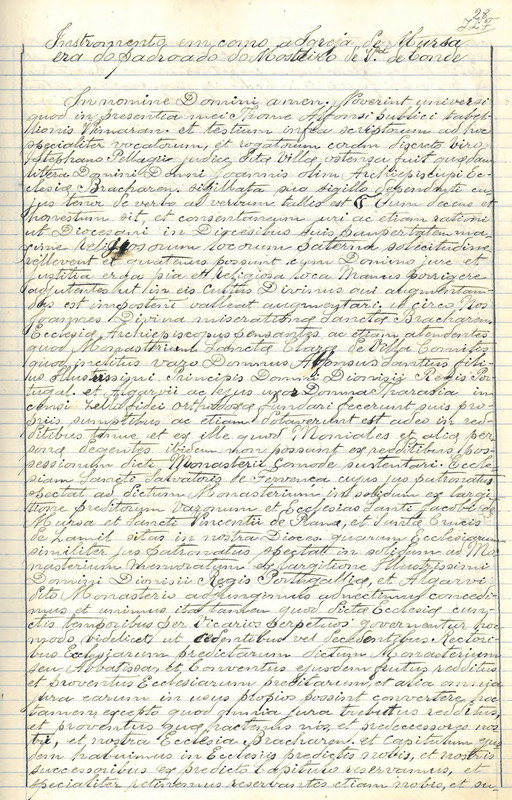 28
Instromento em como a Igreja de Mursa
era do padroado do Mosteiro de Vª. de Conde
In nomine Domini amen. Noverint universi
quod in presentia mei Thome Alfonsi publici tabel-
lionis Vimaran. et testium infra scriptorum ad hoc
specialiter vocatorum, et rogatorum coram discreto viro,
Stephano Pellagii judice dite Villæ, ostensa fuit quædam
litera Domini Domni Joannis olim Archiepiscupi Ec-
clesiæ Bracharen. sibillata suo sigillo dependente cu-
jus tenor de verbo ad verbum tallis est Cum decens et
honestum sit, et consentaneum juri ac etiam rationi
ut Diocesani in Diocesibus suis paupertatem ma-
xime religiosorum locorum paterna solicitudine
rellevent et quatenus possunt cum Domino jure et
justitia erga pia et religiosa loca manus porrigere
adjutantes ut in eis cultus Divinus qui augmentan-
dus est in posteni valleat augmentari. id circo, Nos
Joannes Divina miseratione Sanctæ Bracharen.
Ecclesiæ Archiepiscopus pensantes ac etiam atendentes
quod Monasterium Sanctæ Claræ de Villa Comitis
quod inclitus vazo Domnus Alfonsus Santius fili-
us Illustrissimi Principis Domni Dionisii Regis Por-
tugal. et Algarvii ac ejus uxor Domna Tharasia in-
censi zello fidei orthodoxæ fundari fecerunt suis pro-
priis sumptibus ac etiam dotaverunt est adeo in red-
ditibus tenue et exille quod Moniales et aliæ per-
sonæ degentes ibidem non possunt ex redditibus pos-
sessionum dicti Monasterii comode sustentari. Eccle-
siam Sancti Salvatoris de Fervença cujus jus patronatus
spectat ad dictum Monasterium in solidum ex largi-
tione predictorum vazonum et Ecclesias Santi Jacobi de
Mursa et Sancti Vincentii de Plana, et Santæ Crucis
de Lamil sitas in nostra Dioces. quarum Ecclesiarum
similiter jus patronatus spectat in solidum ad Mo-
nasterium memoratum ex largitione Illustrissimi
Domini Dionisii Regis Portugalliæ, et Algarvi
dito Monasterio adjungimus adnectimus concedi-
mus et unimus ita tamen quod dictæ Ecclesiæ cun-
ctis temporibus per Vicarios perpetuos governentur hoc
modo videlicet ut cedentibus vel decedentibus Rectori-
bus Ecclesiarum predictarum dictum Monasterium
seu Abbatissa, et Conventus ejusdem fructus redditus
et proventus Ecclesiarum predictarum, et alia omnia
jura earum in usus propios possint convertere, hoc
tamen, excepto quod omnia jura tributus redditus,
et proventus quæ hactenus nos, et predeccessores nos-
tri, et nostra Ecclesia Bracharen. et Capitulum qui-
dem habuimus in Ecclesiis predictis nobis, et nostris
successoribus ex predicto Capitulo reservamus, et
specialiter retinemus reservantes etiam nobis, et su-